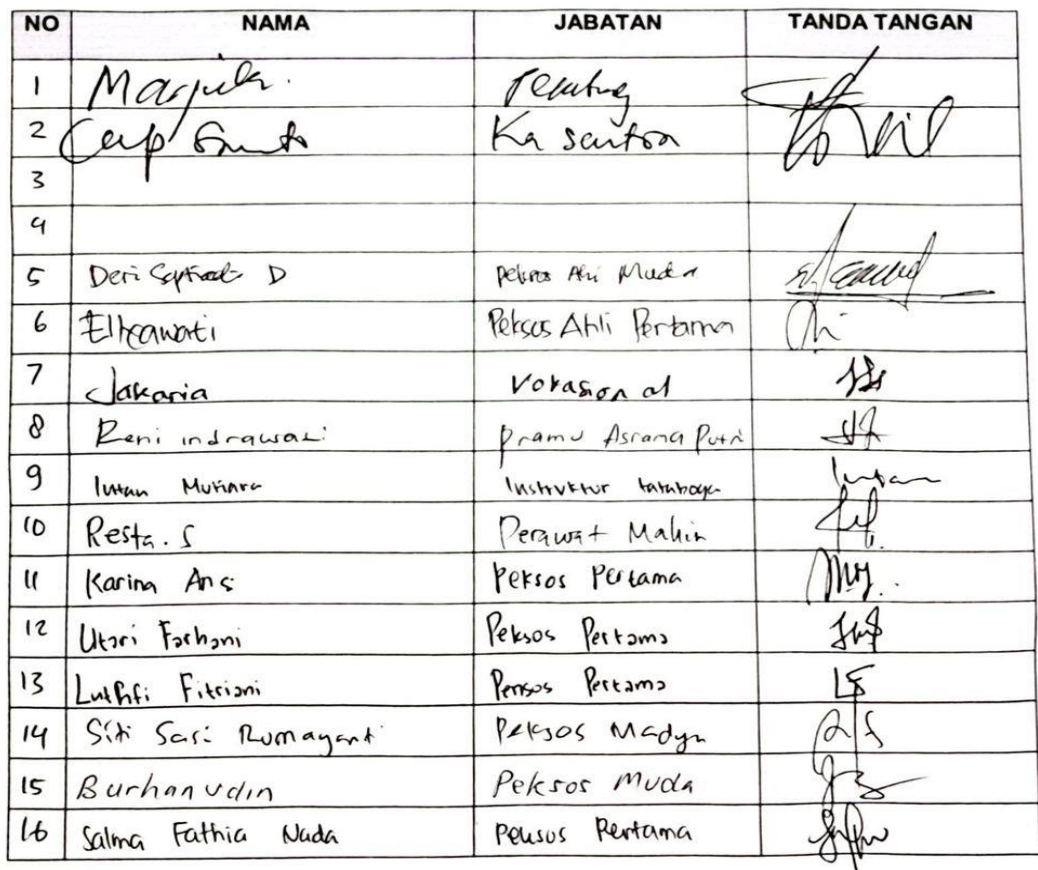 NO NAMA JABATAN TANDA TANGAN
1 Marjuki.
2 Ka sentra
3
4
5 Deri D Peksos Ahli Muda
6 Peksos Ahli Pertama
7 Jakaria Vokasional
8 Reni indrawati Pramu Asrama Putri
9 Intan Mutiara Instruktur tataboga Intan
10 Resta. S Perawat Mahir
11 Karina Peksos Pertama
12 Utari Farhani Peksos Pertama
13 Luthfi Fitriani Pensos Pertama
14 Siti Sari Rumayanti Peksos Madya
15 Burhanudin Peksos Muda
16 Salma Fathia Nada Peksos Pertama